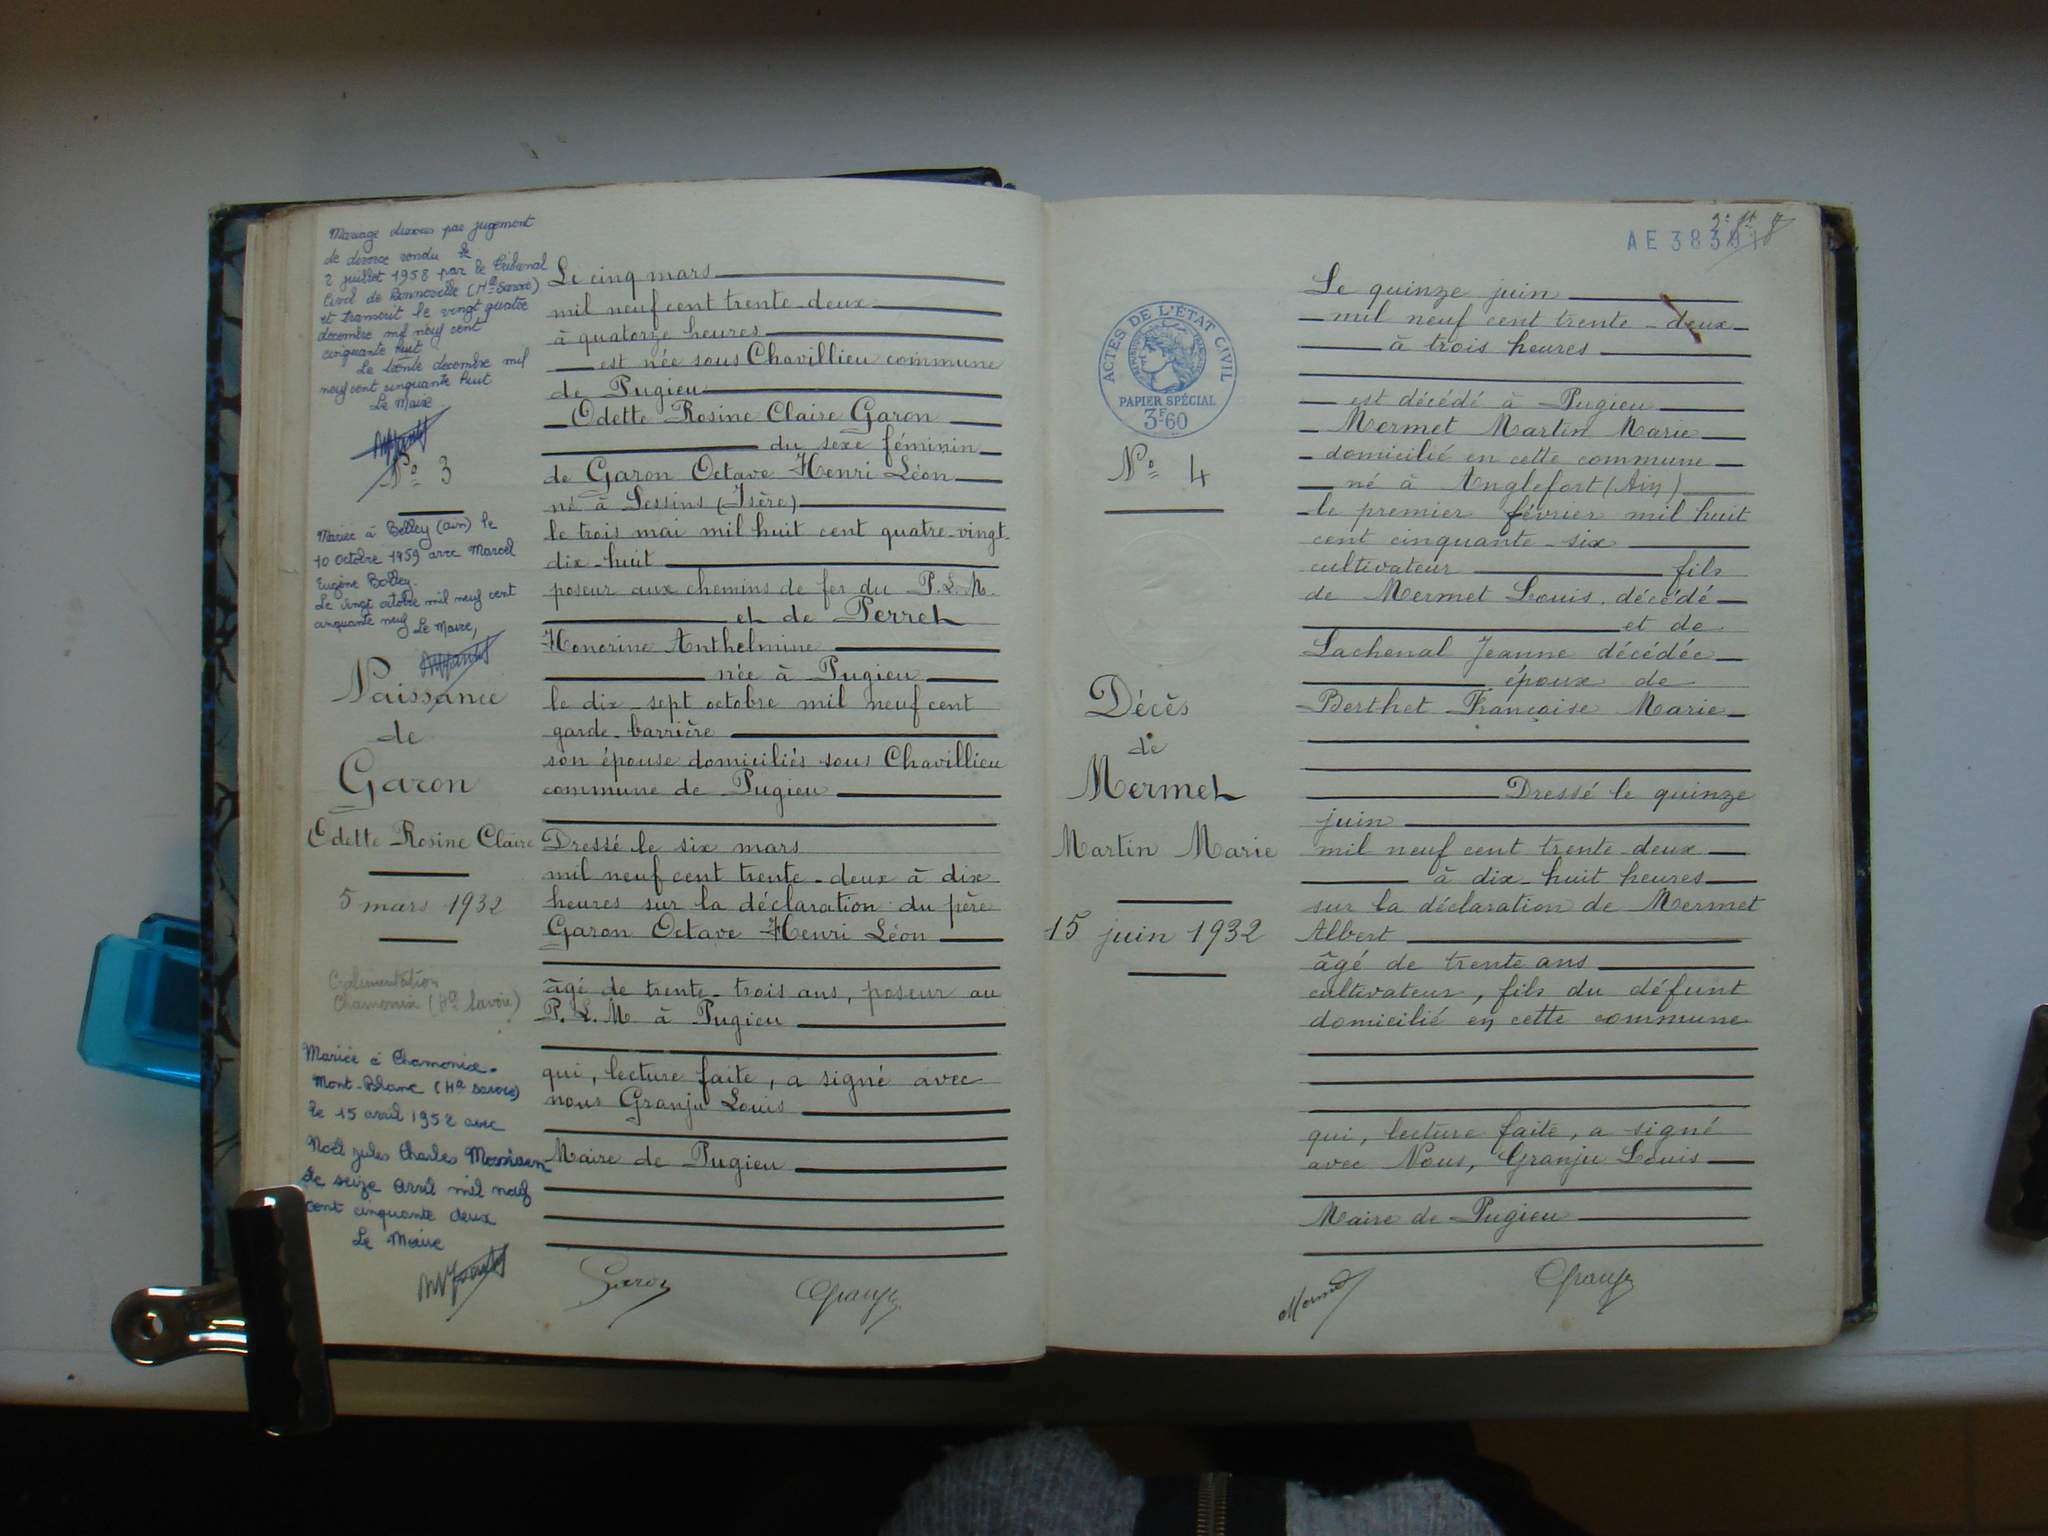 Mariage dissous par jugement
de divorce rendu le
2 juillet 1958 par le Tribunal
Civil de Bonneville (Hte Savoie)
et transcrit le vingt quatre
décembre mil neuf cent
cinquante huit
Le trente décembre mil
neuf cent cinquante huit
Le Maire
No 3
Mariée à Belley (ain) le
10 octobre 1959 avec Marcel
Eugène
Le vingt octobre mil neuf cent
cinquante neuf Le Maire,
Naissance
de
Garon
Odette Rosine Claire
5 mars 1932
Chamonix (Hte Savoie)
Mariée à Chamonix-
Mont-Blanc (Hte Savoie)
le 15 avril 1952 avec
Noël Jules Charles
Le seize avril mil neuf
cent cinquante deux
Le Maire
Le cinq mars
mil neuf cent trente-deux
à quatorze heures
est née sous Chavillieu commune
de Pugieu
Odette Rosine Claire Garon
du sexe féminin
de Garon Octave Henri Léon
né à Sessins (Isère)
le trois mai mil huit cent quatre-vingt-
dix-huit
poseur aux chemins de fer du P.L.M.
et de Perret
Honorine Anthelmine
née à Pugieu
le dix-sept octobre mil neuf cent
garde-barrière
son épouse domiciliés sous Chavillieu
commune de Pugieu
Dressé le six mars
mil neuf cent trente-deux à dix
heures sur la déclaration du père
Garon Octave Henri Léon
âgé de trente-trois ans, poseur au
P.L.M à Pugieu
qui, lecture faite, a signé avec
nous Granju Louis
Maire de Pugieu
Garon Granju
AE 383
ACTES DE L'ÉTAT CIVIL
PAPIER SPÉCIAL
3F60
No 4
Décès
de
Mermet
Martin Marie
15 juin 1932
Le quinze juin
mil neuf cent trente-deux
à trois heures
est décédé à Pugieu
Mermet Martin Marie
domicilié en cette commune
né à Anglefort (Ain)
le premier février mil huit
cent cinquante-six
cultivateur fils
de Mermet Louis, décédé
et de
Lachenal Jeanne décédée
époux de
Berthet Françoise Marie
Dressé le quinze
juin
mil neuf cent trente-deux
à dix-huit heures
sur la déclaration de Mermet
Albert
âgé de trente ans
cultivateur, fils du défunt
domicilié en cette commune
qui, lecture faite, a signé
avec Nous, Granju Louis
Maire de Pugieu
Mermet Granju